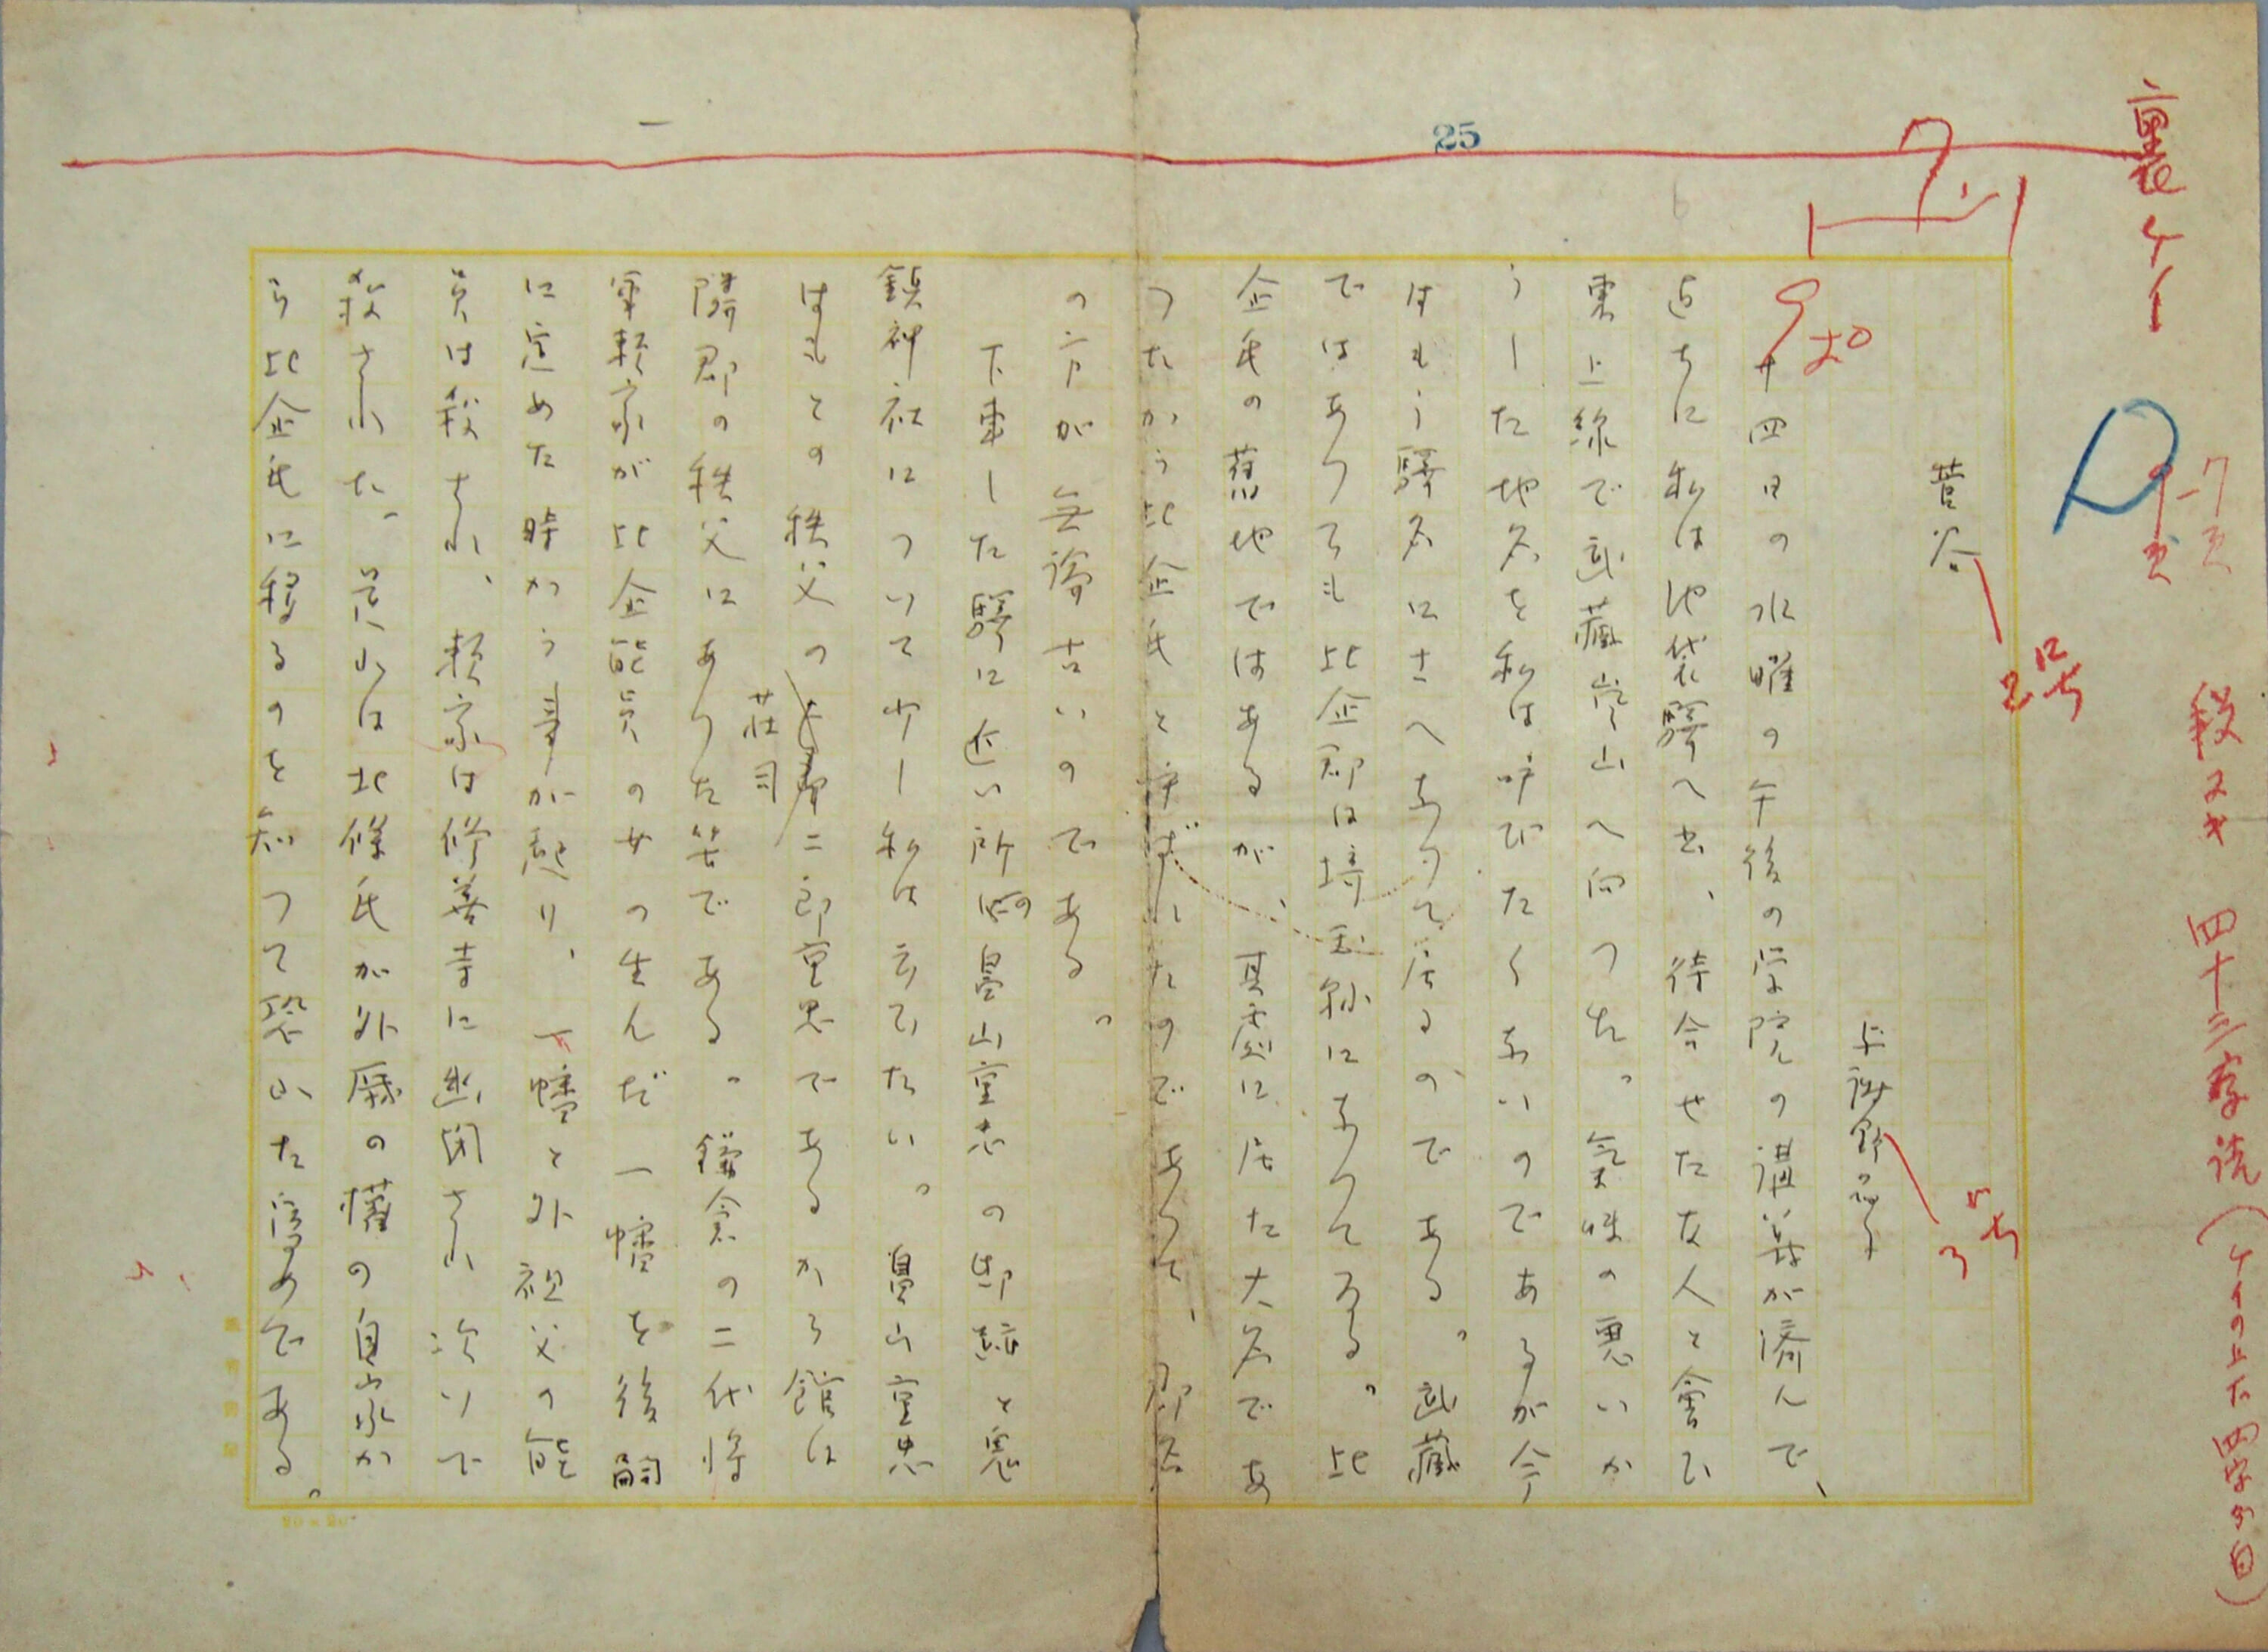 裏ケイ
段ヌキ
25
一
菅谷
2号
与謝野晶子
3号
廿四日の水曜の午後の学院の講義が済んで、
直ちに私は池袋驛へ出、待合せた友人と會ひ
東上線で武藏嵐山へ向つた。氣味の悪いか
うした地名を私は呼びたくないのであるが今
はもう驛名にさへなつて居るのである。武藏
ではあつても比企郡は埼玉縣になつてゐる。比
企氏の舊地ではあるが、其處に居た大名であ
つたから比企氏と呼ばれたのであつて、郡名
の方が無論古いのである。
下車した驛に近い所の畠山重忠の邸跡と
鎮神社について少し私は云ひたい。畠山重忠
はもとの秩父の莊司二郎重忠であるから館は
隣郡の秩父にあつた筈である。鎌倉の二代将
軍頼家が比企能員の女の生んだ一幡を後嗣
に定めた時から事が起り、一幡と外祖父の能
員は殺され、頼家は修善寺に幽閉され次いで
殺された。是れは北條氏が外戚の權の自家か
ら比企氏に移るのを知つて恐れた為めである。
20×20